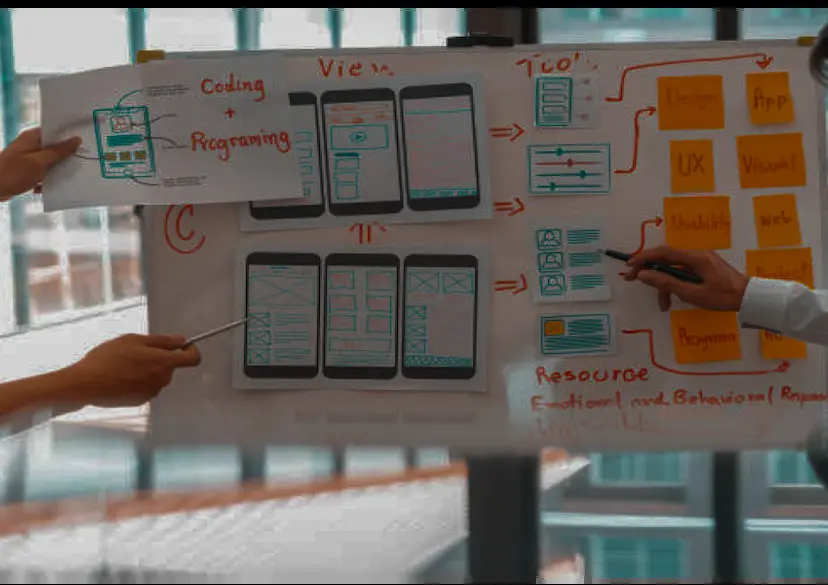 Coding
+
Programing
View
Tool
Design
App
UX
Visual
Usability
Web
Program
C
Resource
Emotional and Behavioral